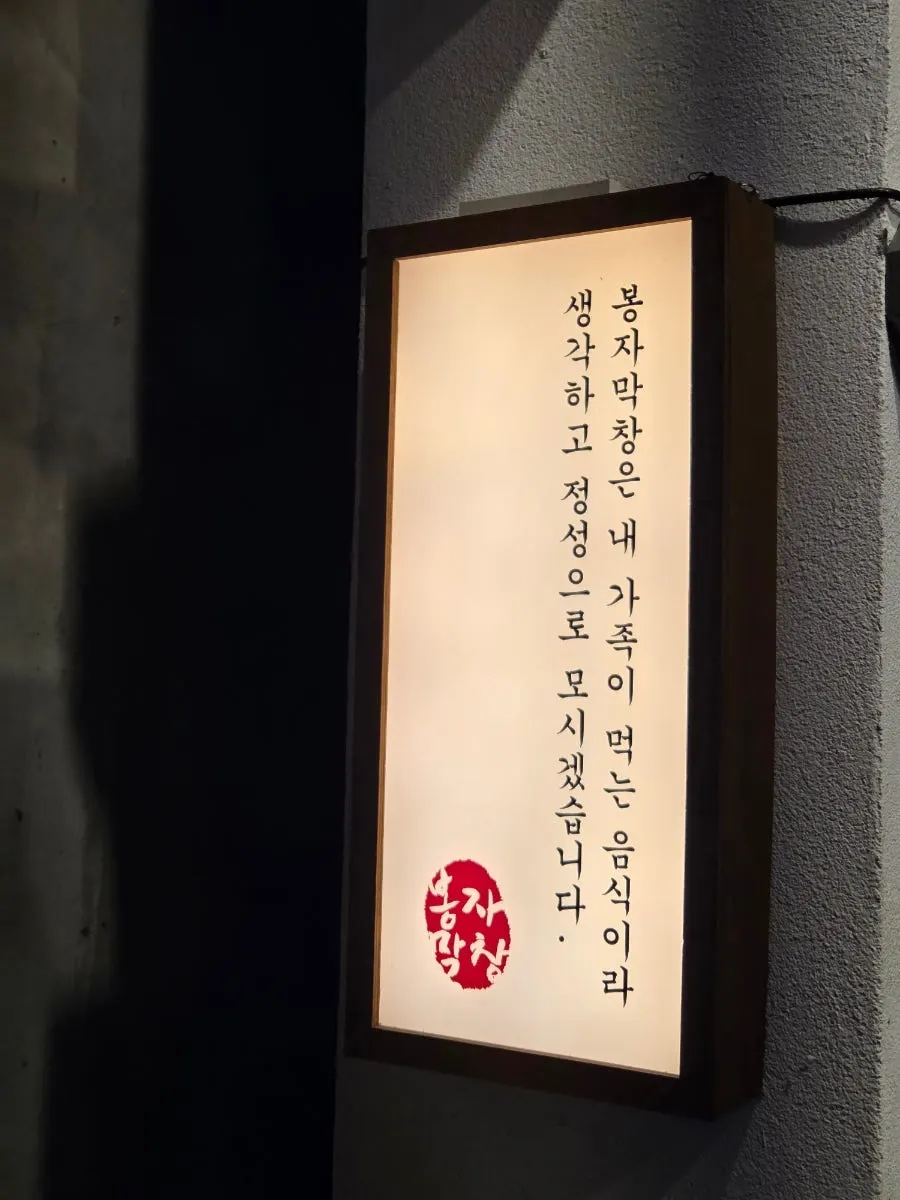 봉자막창은 내 가족이 먹는 음식이라
생각하고 정성으로 모시겠습니다.
봉자
막창